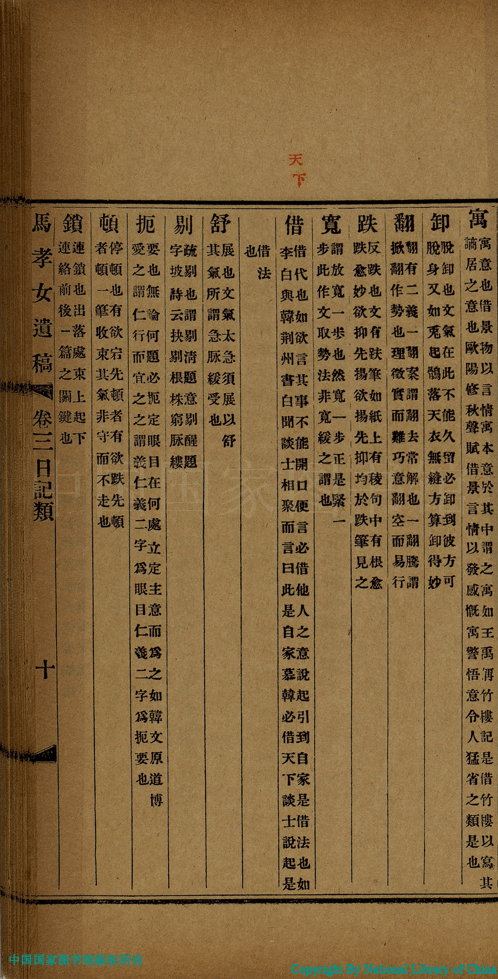 天下
寓
寓意也借景物以言情寓本意於其中謂之寓如王禹偁竹樓記是借竹樓以寫其
謫居之意也歐陽修秋聲賦借景言情以發感慨寓警悟意令人猛省之類是也
卸
脫卸也文氣在此不能久留必卸到彼方可
脫身又如兎起鶻落天衣無縫方算卸得妙
翻
翻有二義一翻案謂翻去常解也一翻騰謂
掀翻作勢也理徵實而難巧意翻空而易行
跌
反跌也文有跌筆如紙上有稜句中有根愈
跌愈妙欲抑先揚欲揚先抑均於跌筆見之
寬
謂放寬一步也然寬一步正是緊一
步此作文取勢法非寬緩之謂也
借
借代也如欲言其事不能開口便言必借他人之意說起引到自家是借法也如
李白與韓荆州書白聞談士相聚而言曰此是自家慕韓必借天下談士說起是
借法
也
舒
展也文氣太急須展以舒
其氣所謂急脉緩受也
剔
疏剔也謂剔淸題意剔醒題
字坡詩云抉剔根株窮脉縷
扼
要也無論何題必扼定眼目在何處立定主意而爲之如韓文原道博
愛之謂仁行而宜之之謂義仁義二字爲眼目仁義二字爲扼要也
頓
停頓也有欲宕先頓者有欲跌先頓
者頓一筆收束其氣非守而不走也
鎖
連鎖也出落處束上起下
連絡前後一篇之關鍵也
馬孝女遺稿 卷三日記類 十
中国国家图书馆版权所有
Copyright By National Library of China